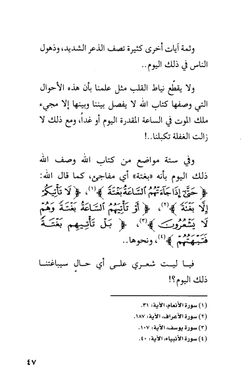 وثمة آيات أخرى كثيرة نصف الذعر الشديد، وذهول
الناس في ذلك اليوم..
ولا يقطّع نياط القلب مثل علمنا بأن هذه الأحوال
التي وصفها كتاب الله لا يفصل بيننا وبينها إلا مجيء
ملك الموت في الساعة المقدرة اليوم أو غداً، ومع ذلك لا
زالت الغفلة تكبلنا..!
وفي ستة مواضع من كتاب الله وصف الله
ذلك اليوم بأنه «بغتة» أي مفاجئ، كما قال الله:
﴿حَتَّىٰ إِذَا جَاءَتْهُمُ السَّاعَةُ بَغْتَةً﴾(١)، ﴿لَا تَأْتِيكُمْ
إِلَّا بَغْتَةً﴾(٢)، ﴿أَوْ تَأْتِيَهُمُ السَّاعَةُ بَغْتَةً وَهُمْ
لَا يَشْعُرُونَ﴾(٣)، ﴿بَلْ تَأْتِيهِم بَغْتَةً
فَتَبْهَتُهُمْ﴾(٤)، ونحوها..
فيا ليت شعري على أي حال سيباغتنا
ذلك اليوم؟!
(١) سورة الأنعام، الآية: ٣١.
(٢) سورة الأعراف، الآية: ١٨٧.
(٣) سورة يوسف، الآية: ١٠٧.
(٤) سورة الأنبياء، الآية: ٤٠.
٤٧